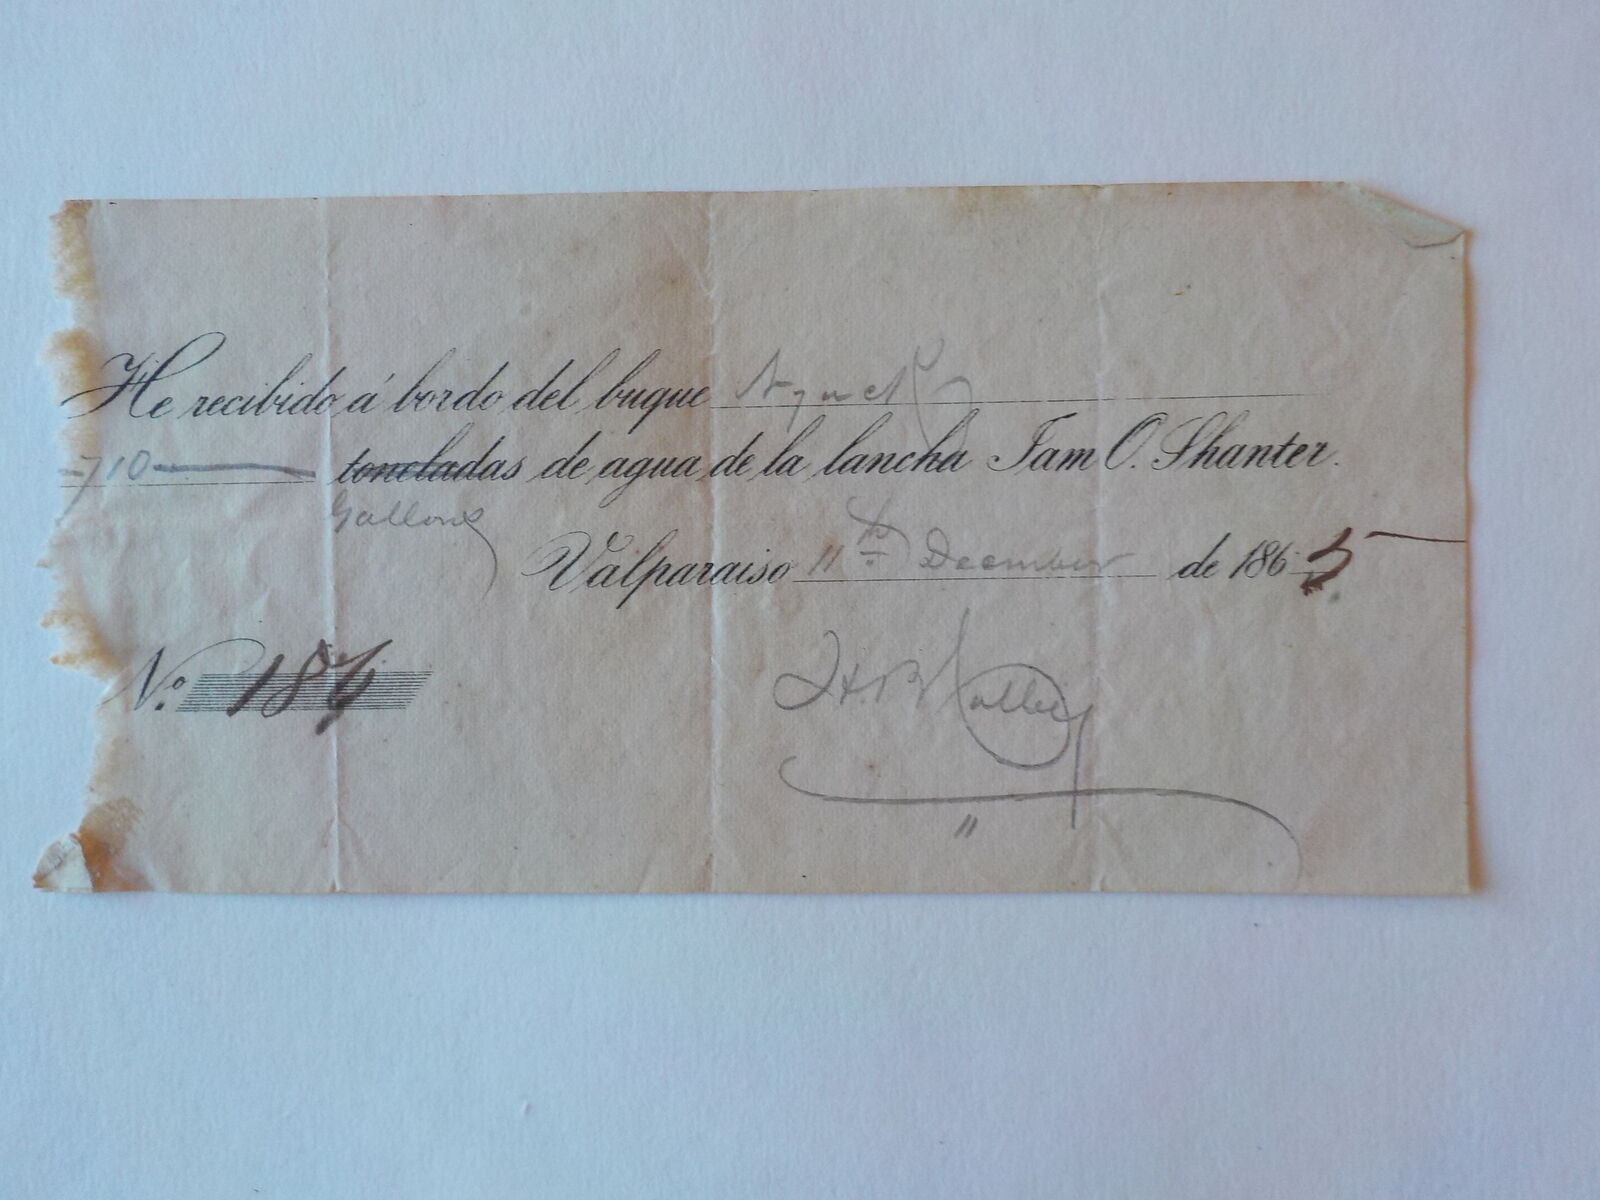 He recibido á bordo del buque
710 toneladas de agua de la lancha Tam O. Shanter.
Gallons
Valparaiso 11th December de 1865
No. 184